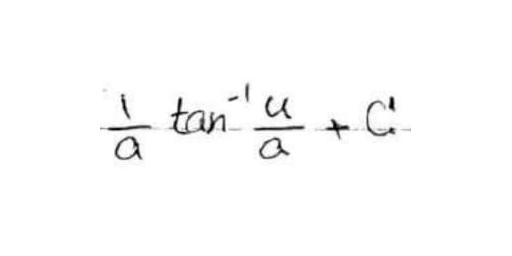 \frac{1}{a} \tan^{-1} \frac{u}{a} + C